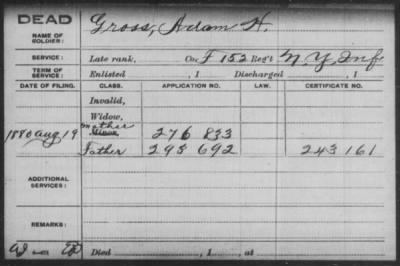 DEAD
NAME OF SOLDIER: Gross, Adam H.
SERVICE: Late rank, Co. F 152 Reg't N. Y. Inf
TERM OF SERVICE: Enlisted , 1 Discharged , 1
DATE OF FILING. CLASS. APPLICATION NO. LAW. CERTIFICATE NO.
Invalid,
Widow,
Mother
1880 Aug 19 Minor 276 833
Father 293 692 243 161
ADDITIONAL SERVICES:
REMARKS:
Died , 1 , at